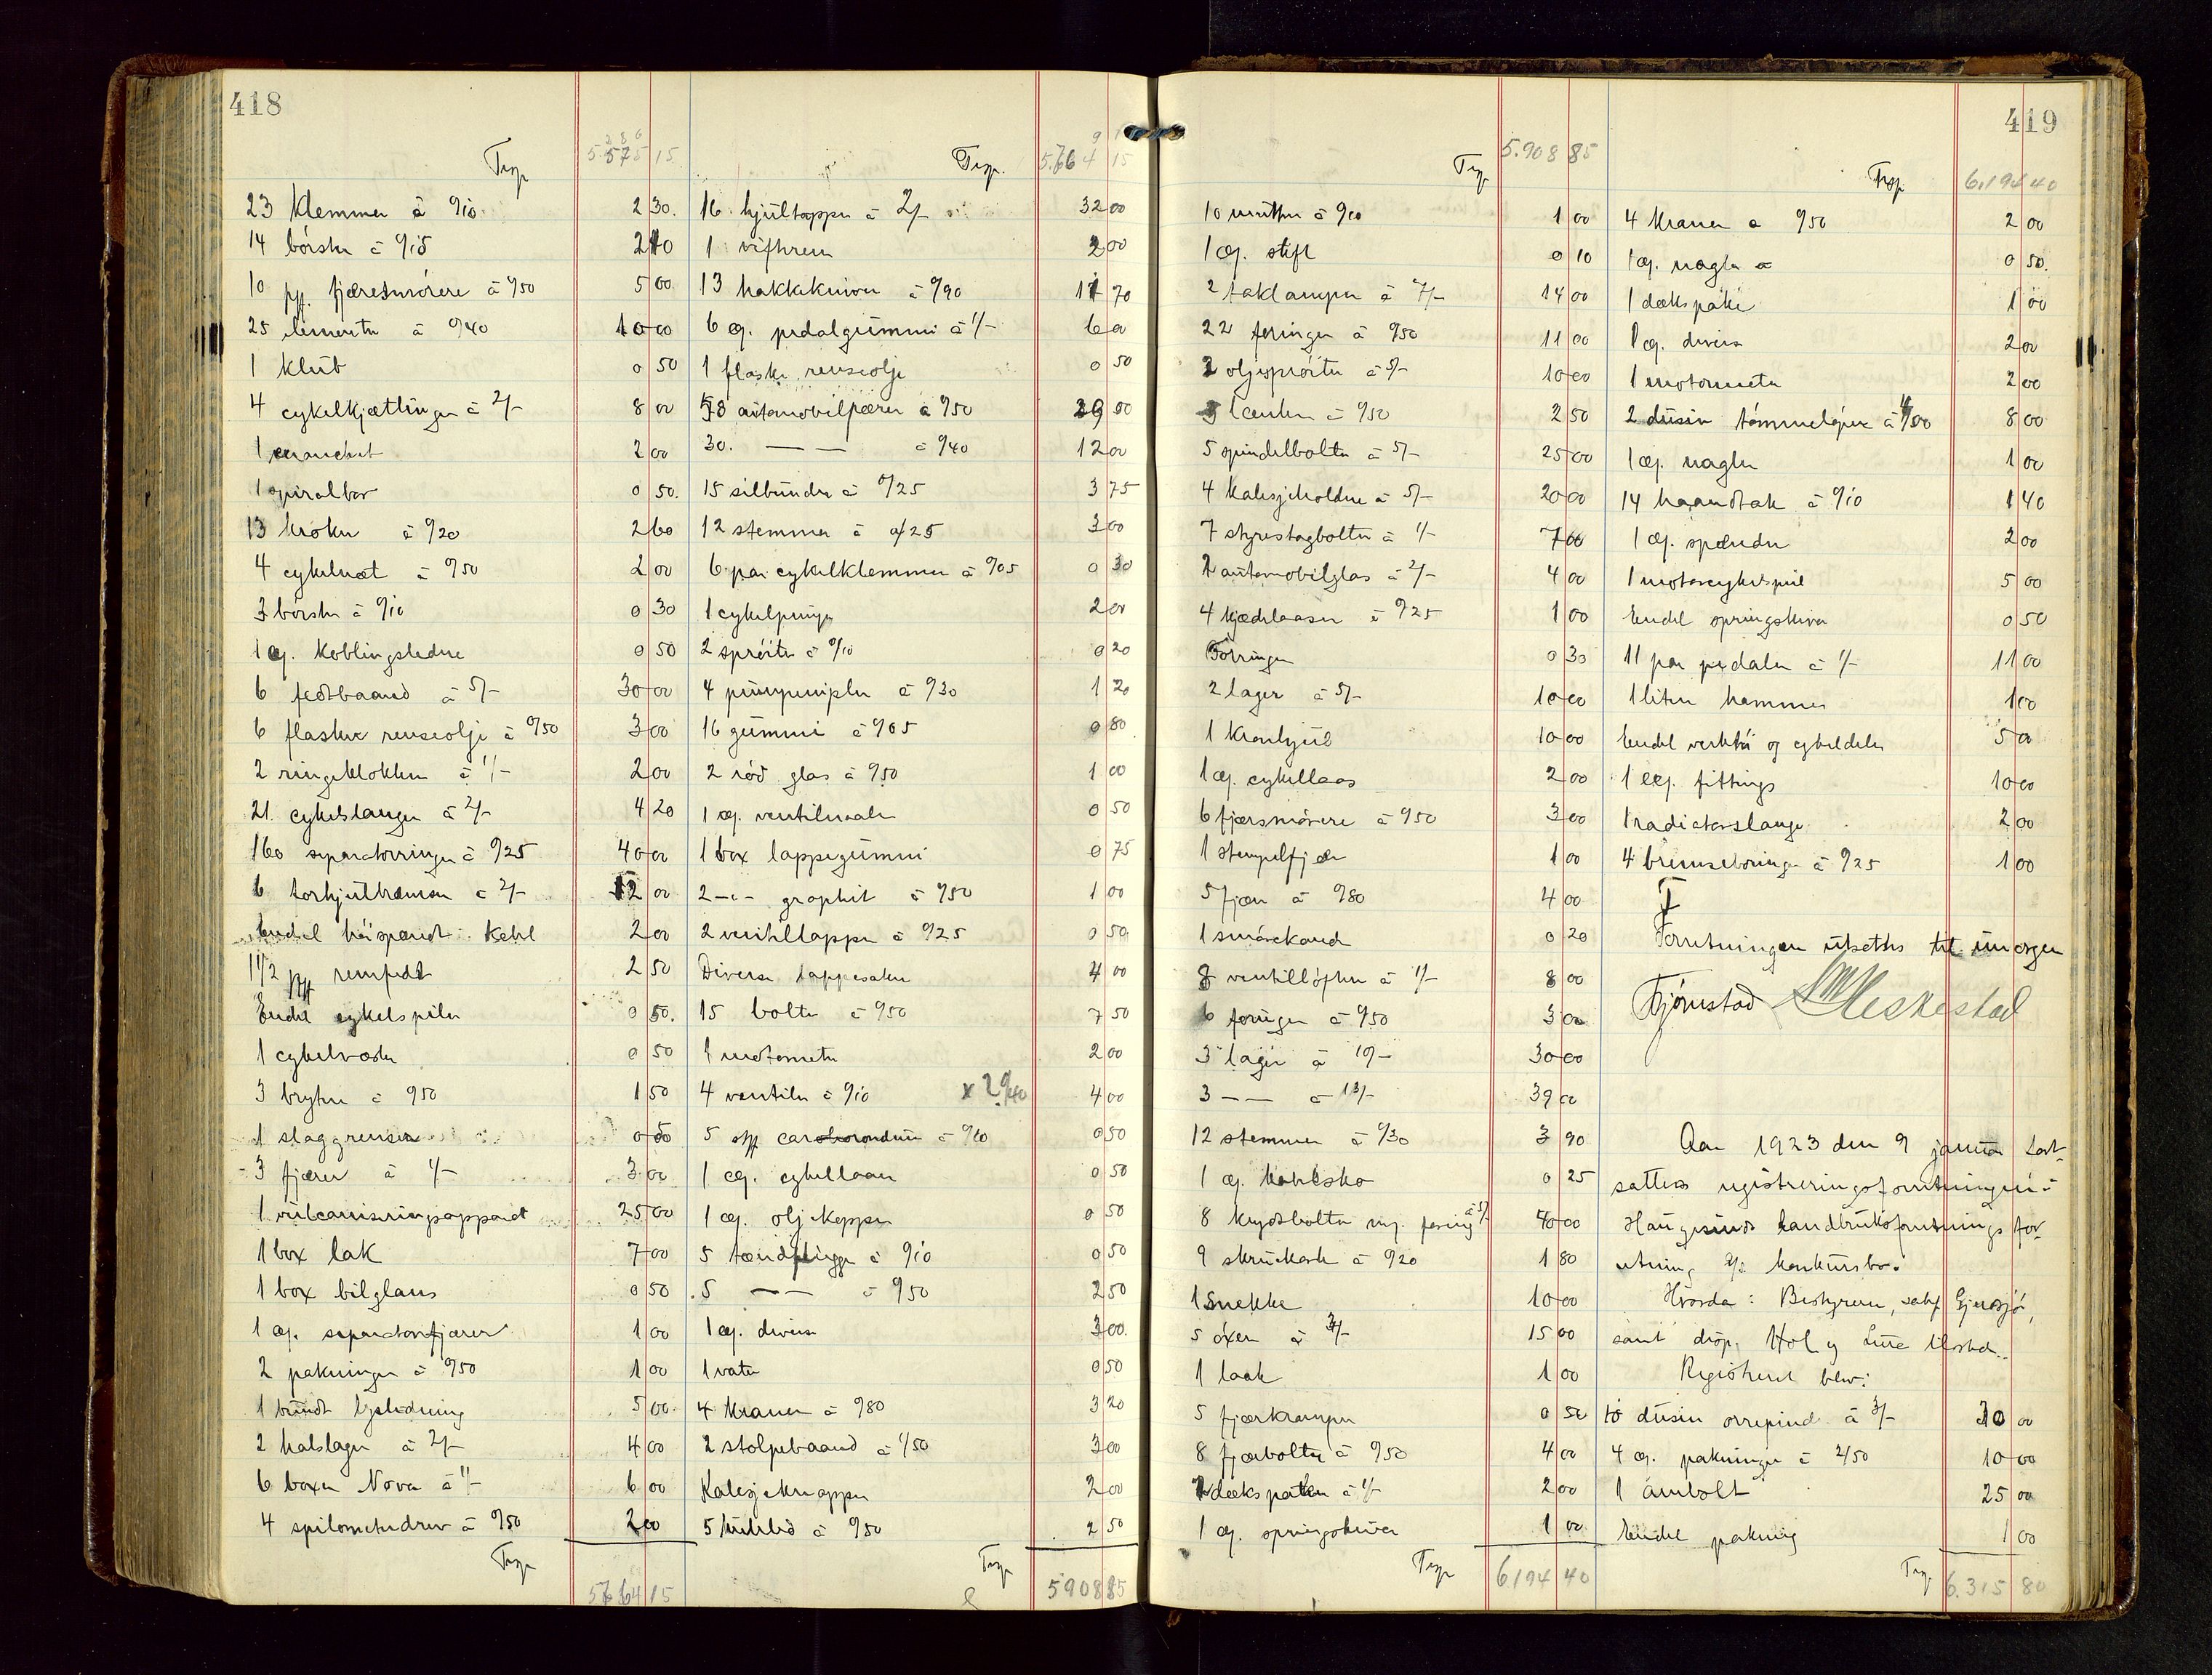 418
Trsp 5.575 15
23 klemmer à 0/10 2 30
14 börster à 0/15 2 10
10 pp. fjæresmörere à 0/50 5 00
25 à 0/40 10 00
1 klub 0 50
4 cykelkjættinger à 2/- 8 00
1 2 00
1 spiralbor 0 50
13 kroker à 0/20 2 60
4 cykelnæt à 0/50 2 00
3 börster à 0/10 0 30
1 æ. koblingsledere 0 50
6 fedtbaand à 5/- 30 00
6 flasker renseolje à 0/50 3 00
2 ringeklokker à 1/- 2 00
21 cykelslanger à 2/- 4 20
160 separatorringer à 0/25 40 00
6 torhjulbremser à 2/- 12 00
Endel 2 00
1 1/2 remfedt 2 50
Endel cykelspiler 0 50
1 0 50
3 brytere à 0/50 1 50
1 slaggrenser 0 50
3 fjærer à 1/- 3 00
1 vulcaniseringsapparat 25 00
1 box lak 7 00
1 box bilglans 0 50
1 æ. separatorfjærer 1 00
2 pakninger à 0/50 1 00
1 bundt lysledning 5 00
2 halslager à 2/- 4 00
6 boxer Nova à 1/- 6 00
4 spilometerdrev à 0/50 2 00
Trsp 5764 15
Trsp. 5.764 15
16 hjultapper à 2/- 32 00
1 vifterem 2 00
13 hakkekniver à 0/90 11 70
6 æ. pedalgummi à 1/- 6 00
1 flaske renseolje 0 50
58 automobilpærer à 0/50 29 00
30. — — à 0/40 12 00
15 silbunder à 0/25 3 75
12 stemmer à 0/25 3 00
6 par cykelklemmer à 0/05 0 30
1 cykelpumpe 2 00
2 spröiter à 0/10 0 20
4 pumpenipler à 0/30 1 20
16 gummi à 0/05 0 80
2 röd glas à 0/50 1 00
1 æ. ventilnaaler 0 50
1 box lappegummi 0 75
2 -"- graphit à 0/50 1 00
2 ventillapper à 0/25 0 50
Diverse lappesaker 4 00
15 bolter à 0/50 7 50
1 motometer 2 00
4 ventiler à 0/10 x 2 0/40 4 00
5 carborondum à 0/10 0 50
1 æ. cykellaaser 0 50
1 æ. oljekopper 0 50
5 tændplugge à 0/10 0 50
5 — — à 0/50 2 50
1 æ. diverse 3 00
1 vater 0 50
4 kraner à 0/80 3 20
2 stolpebaand à 1/50 3 00
Kalesjeknapper 2 00
5 à 0/50 2 50
Trsp 5908 85
419
Trsp 5.908 85
10 muttere à 0/10 1 00
1 æ. stift 0 10
2 taklamper à 7/- 14 00
22 foringer à 0/50 11 00
2 oljespröiter à 5/- 10 00
5 à 0/50 2 50
5 spindelbolter à 5/- 25 00
4 kalesjeholdere à 5/- 20 00
7 styrestagbolter à 1/- 7 00
2 automobilglas à 2/- 4 00
4 kjædelaaser à 0/25 1 00
0 30
2 lager à 5/- 10 00
1 kronhjul 10 00
1 æ. cykellaas 2 00
6 fjærsmörere à 0/50 3 00
1 stempelfjær 1 00
5 fjær à 0/80 4 00
1 smörekande 0 20
8 ventillöftere à 1/- 8 00
6 foringer à 0/50 3 00
3 lager à 10/- 30 00
3 — — à 13/- 39 00
12 stemmer à 0/30 3 90
1 æ. kabelsko 0 25
8 krydsbolter m. foring à 5/- 40 00
9 skruekork à 0/20 1 80
1 snekke 10 00
5 öxer à 3/- 15 00
1 laak 1 00
5 fjærkramper 0 50
8 fjærbolter à 0/50 4 00
2 dækspaker à 1/- 2 00
1 æ. springskiver 1 00
Trsp 6194 40
Trsp 6.194 40
4 kraner à 0/50 2 00
1 æ. nagler 0 50
1 dækspake 1 00
1 æ. diverse 2 00
1 motometer 2 00
2 dusin tömmelöper à 4/00 8 00
1 æ. nagler 1 00
14 haandtak à 0/10 1 40
1 æ. spænder 2 00
1 motorcykelspeil 5 00
Endel springskiver 0 50
11 par pedaler à 1/- 11 00
1 liten hammer 1 00
Endel verktöi og cykeldeler 5 00
1 æ. fittings 10 00
1 radiatorslange 2 00
4 bremseboringe à 0/25 1 00
Forretningen utsattes til imorgen
Tjönstad Meskestad
Aar 1923 den 9 januar fort-
sattes registreringsforretningen i
Haugesunds landbruksforretnings for-
retning A/S konkursbo.
Hvorda: Bestyreren, sakf. Gjersjö,
samt disp. Hol og Lura tilsted..
Registrert blev:
10 dusin orrepind à 3/- 30 00
4 æ. pakninger à 2/50 10 00
1 ambolt 25 00
Endel pakning 1 00
Trsp. 6.315 80